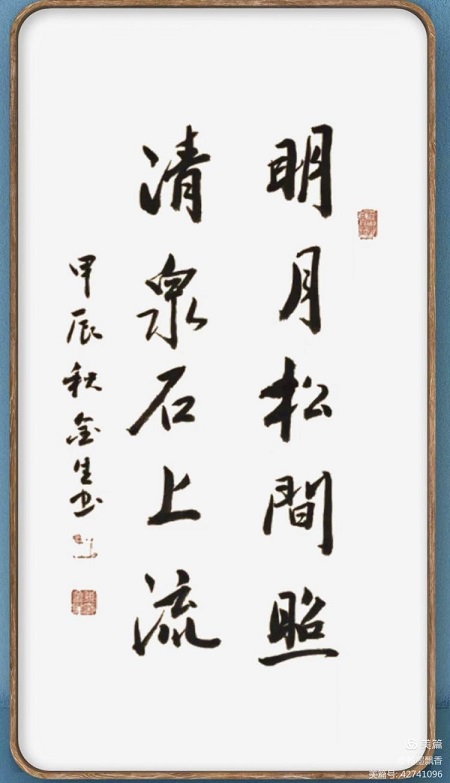 明月松間照
清泉石上流
甲辰秋金生书
美篇
飘香
美篇号: 42741096